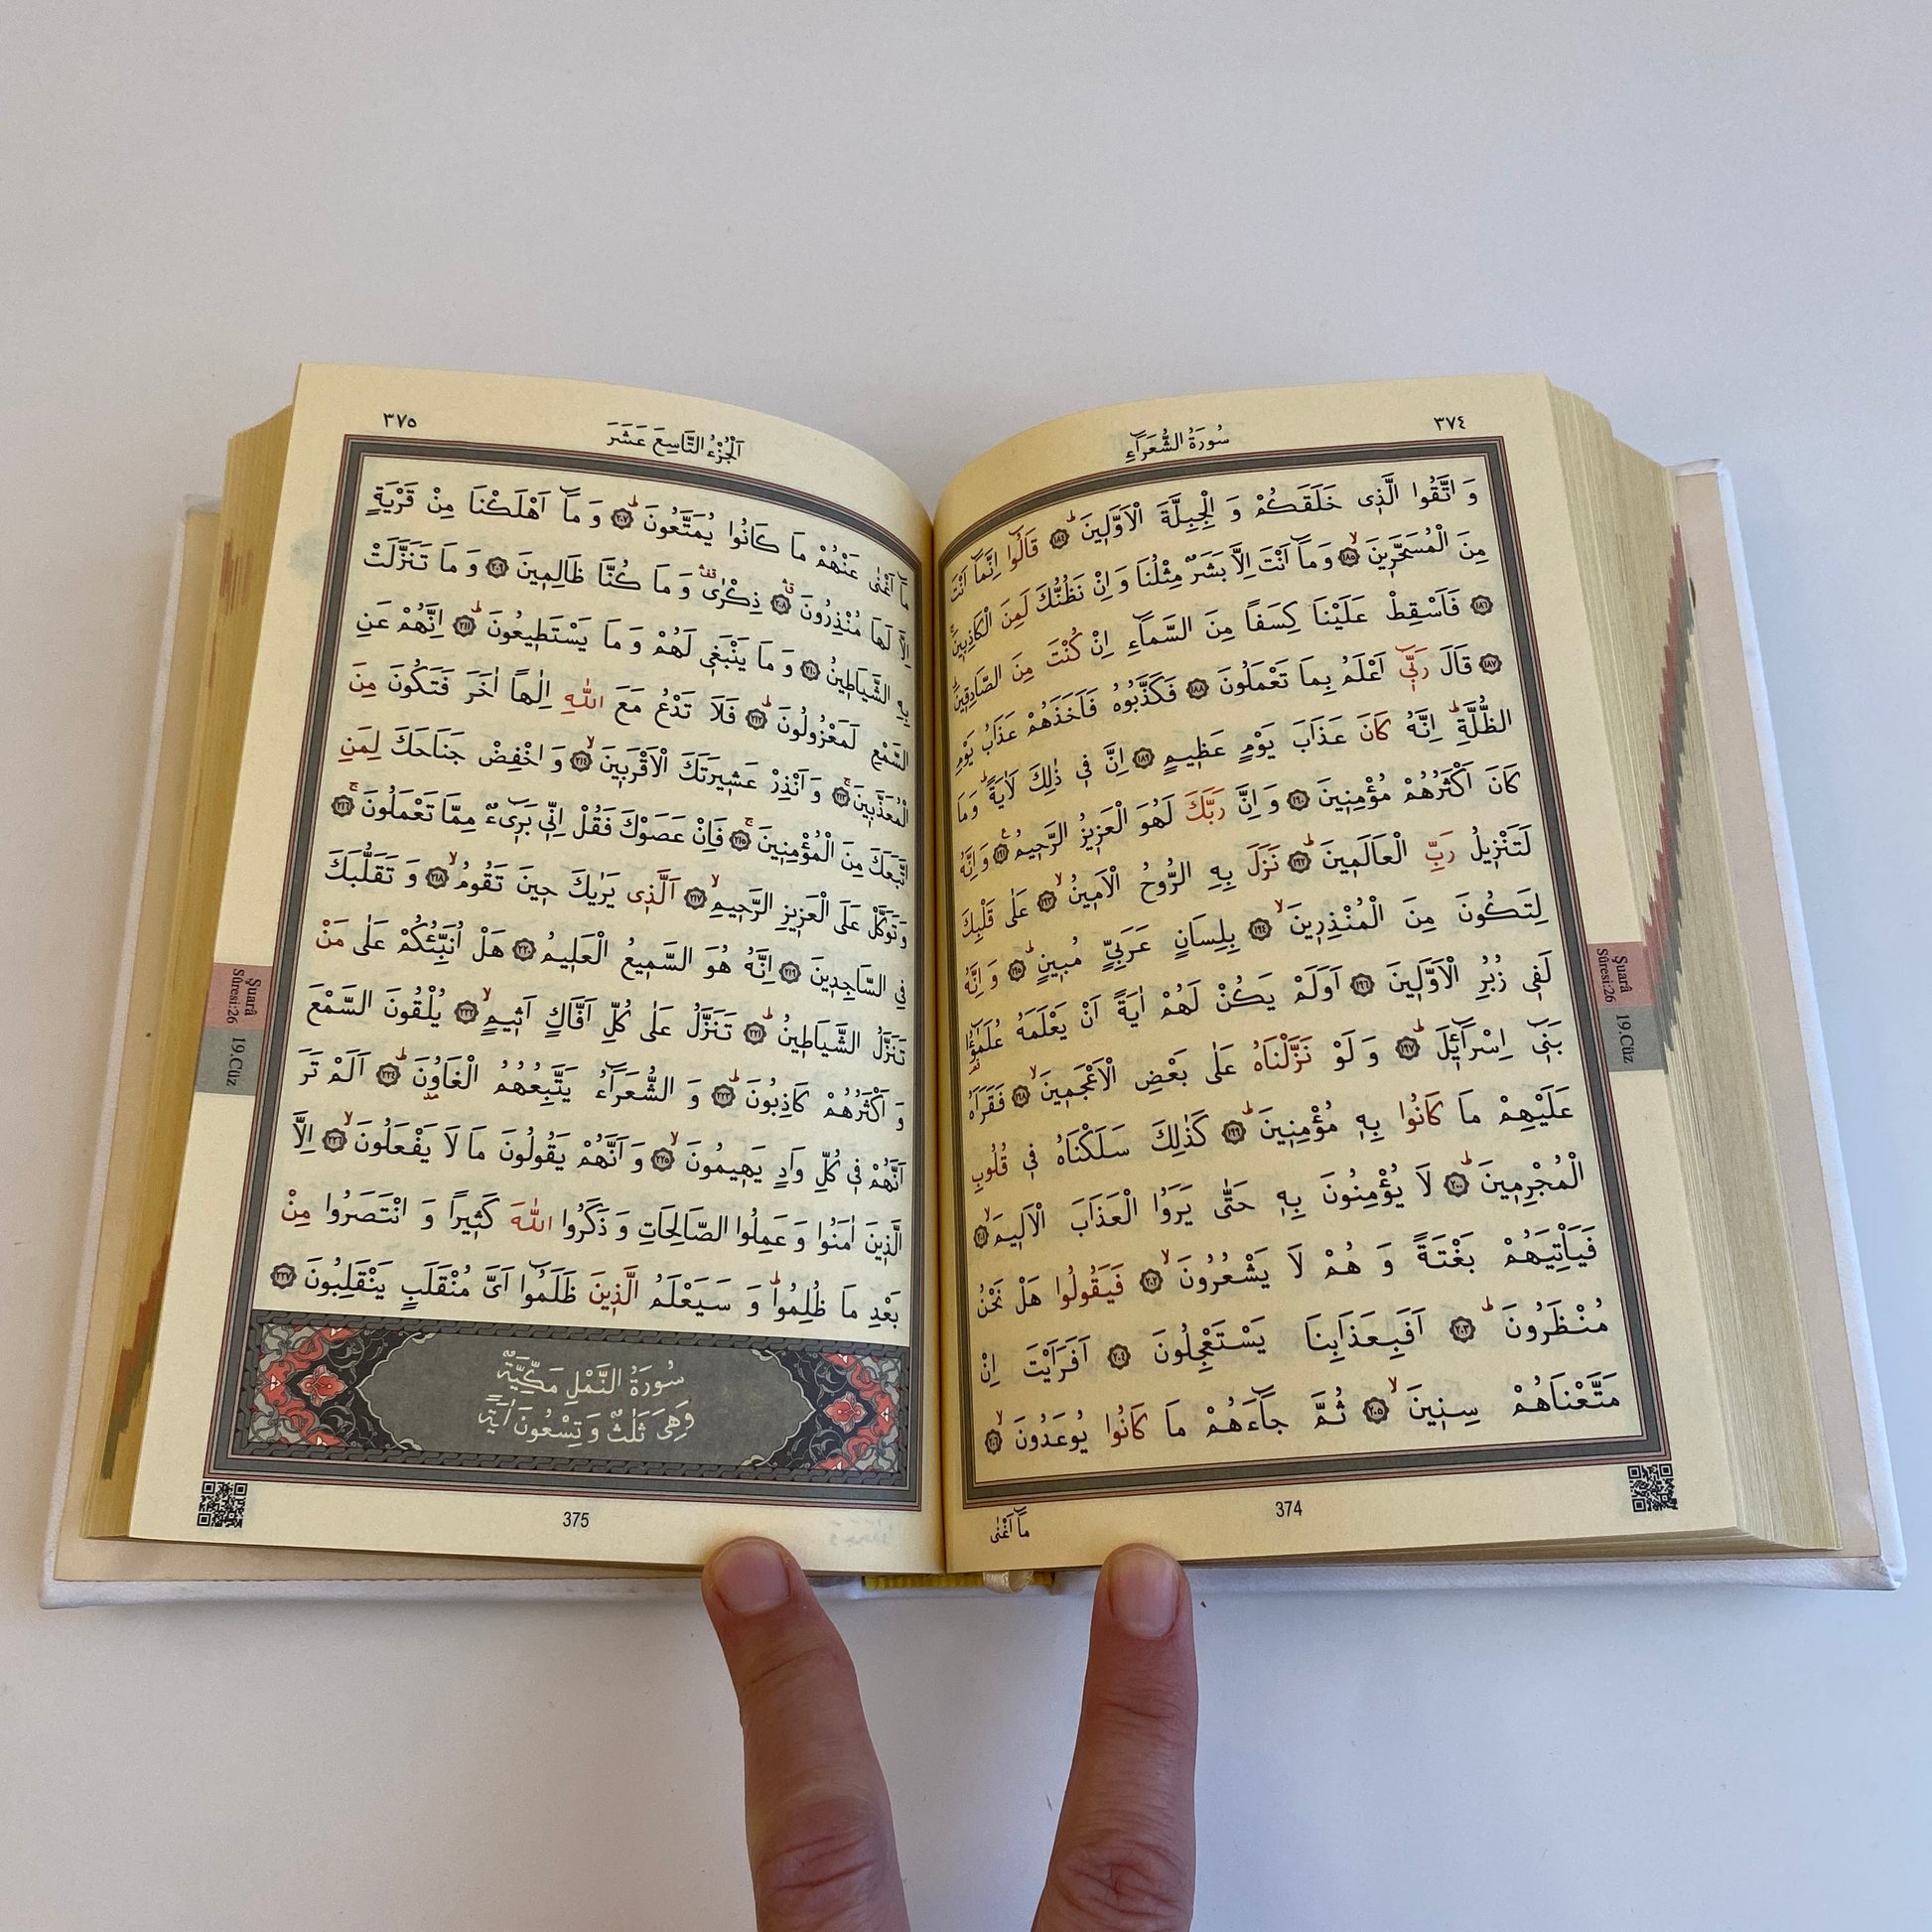 ٣٧٤
سُورَةُ الشُّعَرَاءِ
وَاتَّقُوا الَّذ۪ى خَلَقَكُمْ وَالْجِبِلَّةَ الْاَوَّل۪ينَۜ ﴿١٨٤﴾ قَالُٓوا اِنَّمَٓا اَنْتَ
مِنَ الْمُسَحَّر۪ينَۙ ﴿١٨٥﴾ وَمَٓا اَنْتَ اِلَّا بَشَرٌ مِثْلُنَا وَاِنْ نَظُنُّكَ لَمِنَ الْكَاذِب۪ينَۚ
﴿١٨٦﴾ فَاَسْقِطْ عَلَيْنَا كِسَفًا مِنَ السَّمَٓاءِ اِنْ كُنْتَ مِنَ الصَّادِق۪ينَۜ
﴿١٨٧﴾ قَالَ رَبّ۪ٓى اَعْلَمُ بِمَا تَعْمَلُونَ ﴿١٨٨﴾ فَكَذَّبُوهُ فَاَخَذَهُمْ عَذَابُ يَوْمِ
الظُّلَّةِۜ اِنَّهُ كَانَ عَذَابَ يَوْمٍ عَظ۪يمٍ ﴿١٨٩﴾ اِنَّ ف۪ى ذٰلِكَ لَاٰيَةًۜ وَمَا
كَانَ اَكْثَرُهُمْ مُؤْمِن۪ينَ ﴿١٩٠﴾ وَاِنَّ رَبَّكَ لَهُوَ الْعَز۪يزُ الرَّح۪يمُ ﴿١٩١﴾ وَاِنَّهُ
لَتَنْز۪يلُ رَبِّ الْعَالَم۪ينَۜ ﴿١٩٢﴾ نَزَلَ بِهِ الرُّوحُ الْاَم۪ينُۙ ﴿١٩٣﴾ عَلٰى قَلْبِكَ
لِتَكُونَ مِنَ الْمُنْذِر۪ينَۙ ﴿١٩٤﴾ بِلِسَانٍ عَرَبِىٍّ مُب۪ينٍۜ ﴿١٩٥﴾ وَاِنَّهُ
لَف۪ى زُبُرِ الْاَوَّل۪ينَ ﴿١٩٦﴾ اَوَلَمْ يَكُنْ لَهُمْ اٰيَةً اَنْ يَعْلَمَهُ عُلَمٰٓؤُ۬ا
بَن۪ٓى اِسْرَٓائ۪لَۜ ﴿١٩٧﴾ وَلَوْ نَزَّلْنَاهُ عَلٰى بَعْضِ الْاَعْجَم۪ينَۙ ﴿١٩٨﴾ فَقَرَاَهُ
عَلَيْهِمْ مَا كَانُوا بِه۪ مُؤْمِن۪ينَۜ ﴿١٩٩﴾ كَذٰلِكَ سَلَكْنَاهُ ف۪ى قُلُوبِ
الْمُجْرِم۪ينَۜ ﴿٢٠٠﴾ لَا يُؤْمِنُونَ بِه۪ حَتّٰى يَرَوُا الْعَذَابَ الْاَل۪يمَۙ ﴿٢٠١﴾
فَيَاْتِيَهُمْ بَغْتَةً وَهُمْ لَا يَشْعُرُونَۙ ﴿٢٠٢﴾ فَيَقُولُوا هَلْ نَحْنُ
مُنْظَرُونَۜ ﴿٢٠٣﴾ اَفَبِعَذَابِنَا يَسْتَعْجِلُونَ ﴿٢٠٤﴾ اَفَرَاَيْتَ اِنْ
مَتَّعْنَاهُمْ سِن۪ينَۙ ﴿٢٠٥﴾ ثُمَّ جَٓاءَهُمْ مَا كَانُوا يُوعَدُونَۙ ﴿٢٠٦﴾
مَٓا اَغْنٰى
374
Şuarâ
Sûresi:26
19.Cüz
٣٧٥
اَلْجُزْءُ التَّاسِعَ عَشَرَ
مَٓا اَغْنٰى عَنْهُمْ مَا كَانُوا يُمَتَّعُونَۜ ﴿٢٠٧﴾ وَمَٓا اَهْلَكْنَا مِنْ قَرْيَةٍ
اِلَّا لَهَا مُنْذِرُونَ ﴿٢٠٨﴾ ذِكْرٰى وَمَا كُنَّا ظَالِم۪ينَ ﴿٢٠٩﴾ وَمَا تَنَزَّلَتْ
بِهِ الشَّيَاط۪ينُ ﴿٢١٠﴾ وَمَا يَنْبَغ۪ى لَهُمْ وَمَا يَسْتَط۪يعُونَۜ ﴿٢١١﴾ اِنَّهُمْ عَنِ
السَّمْعِ لَمَعْزُولُونَۜ ﴿٢١٢﴾ فَلَا تَدْعُ مَعَ اللّٰهِ اِلٰهًا اٰخَرَ فَتَكُونَ مِنَ
الْمُعَذَّب۪ينَۚ ﴿٢١٣﴾ وَاَنْذِرْ عَش۪يرَتَكَ الْاَقْرَب۪ينَۙ ﴿٢١٤﴾ وَاخْفِضْ جَنَاحَكَ لِمَنِ
اتَّبَعَكَ مِنَ الْمُؤْمِن۪ينَۚ ﴿٢١٥﴾ فَاِنْ عَصَوْكَ فَقُلْ اِنّ۪ى بَر۪ٓىءٌ مِمَّا تَعْمَلُونَۚ ﴿٢١٦﴾
وَتَوَكَّلْ عَلَى الْعَز۪يزِ الرَّح۪يمِۙ ﴿٢١٧﴾ اَلَّذ۪ى يَرٰيكَ ح۪ينَ تَقُومُۙ ﴿٢١٨﴾ وَتَقَلُّبَكَ
فِى السَّاجِد۪ينَ ﴿٢١٩﴾ اِنَّهُ هُوَ السَّم۪يعُ الْعَل۪يمُ ﴿٢٢٠﴾ هَلْ اُنَبِّئُكُمْ عَلٰى مَنْ
تَنَزَّلُ الشَّيَاط۪ينُۜ ﴿٢٢١﴾ تَنَزَّلُ عَلٰى كُلِّ اَفَّاكٍ اَث۪يمٍۙ ﴿٢٢٢﴾ يُلْقُونَ السَّمْعَ
وَاَكْثَرُهُمْ كَاذِبُونَۜ ﴿٢٢٣﴾ وَالشُّعَرَٓاءُ يَتَّبِعُهُمُ الْغَاوُ۫نَۜ ﴿٢٢٤﴾ اَلَمْ تَرَ
اَنَّهُمْ ف۪ى كُلِّ وَادٍ يَه۪يمُونَۙ ﴿٢٢٥﴾ وَاَنَّهُمْ يَقُولُونَ مَا لَا يَفْعَلُونَۙ ﴿٢٢٦﴾ اِلَّا
الَّذ۪ينَ اٰمَنُوا وَعَمِلُوا الصَّالِحَاتِ وَذَكَرُوا اللّٰهَ كَث۪يرًا وَانْتَصَرُوا مِنْ
بَعْدِ مَا ظُلِمُواۜ وَسَيَعْلَمُ الَّذ۪ينَ ظَلَمُٓوا اَىَّ مُنْقَلَبٍ يَنْقَلِبُونَ ﴿٢٢٧﴾
سُورَةُ النَّمْلِ مَكِّيَّةٌ
وَهِىَ ثَلٰثٌ وَتِسْعُونَ اٰيَةً
375
Şuarâ
Sûresi:26
19.Cüz